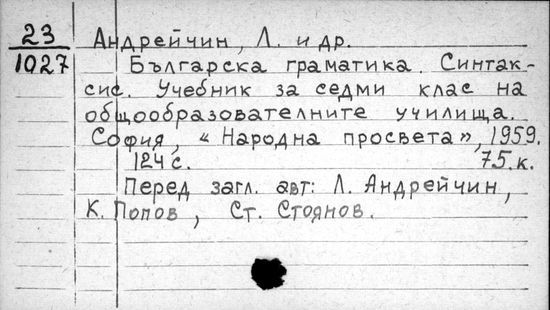 23
1027
Андрейчин, Л. и др.
Българска граматика. Синтак-
сис. Учебник за седми клас на
общообразователните училища.
София, "Народна просвета", 1959.
124 с. 75.к.
Перед загл. авт: Л. Андрейчин,
К. Попов, Ст. Стоянов.